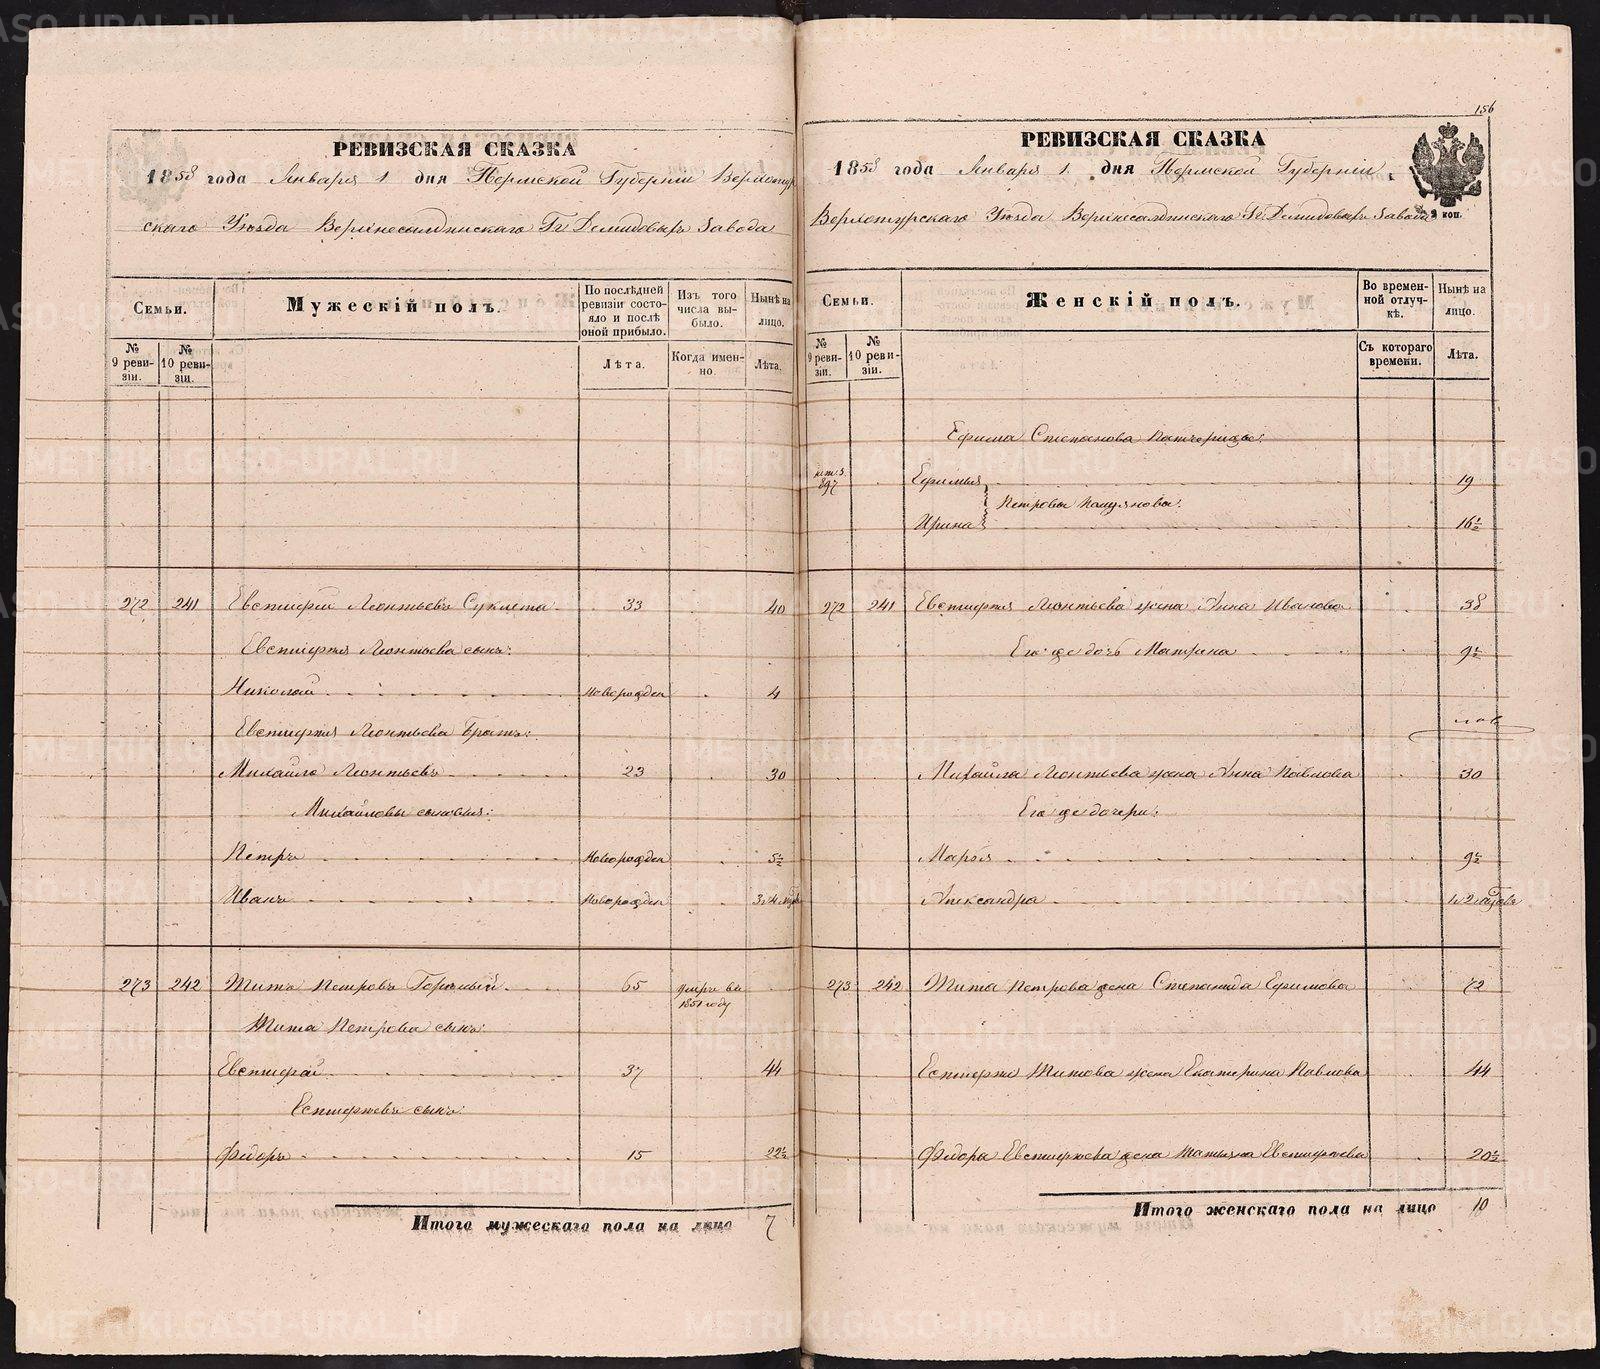 РЕВИЗСКАЯ СКАЗКА
1858 года Января 1 дня Пермской Губерніи Верхотур
скаго Уѣзда Верхнесалдинскаго Гг Демидовыхъ Завода
Семьи.
Мужескій полъ.
По послѣдней ревизіи состояло и послѣ оной прибыло.
Изъ того числа выбыло.
Нынѣ на лицо.
№ 9 ревизіи.
№ 10 ревизіи.
Лѣта.
Когда именно.
Лѣта.
272 241 Евстифій Леонтьевъ 33 40
Евстифія Леонтьева сынъ:
Николай новорожден 4
Евстифія Леонтьева братъ:
Михайло Леонтьевъ 23 30
Михайловы сыновья:
Петръ новорожден 5½
Иванъ новорожден
273 242 Титъ Петровъ 65 умеръ въ 1851 году
Тита Петрова сынъ:
Евстифѣй 37 44
сынъ:
Федоръ 15 22½
Итого мужескаго пола на лицо 7
156
РЕВИЗСКАЯ СКАЗКА
1858 года Января 1 дня Пермской Губерніи,
Верхотурскаго Уѣзда Верхнесалдинскаго Гг Демидовыхъ Завода
2 коп.
Семьи.
Женскій полъ.
Во временной отлучкѣ.
Нынѣ на лицо.
№ 9 ревизіи.
№ 10 ревизіи.
Съ котораго времени.
Лѣта.
Ефима Степанова падчерицы:
897 Ефимья 19
Петровы
Ирина 16½
272 241 Евстифія Леонтьева жена Анна Иванова 38
Его же дочь Матрена 9½
Михайла Леонтьева жена Анна Павлова 30
Его же дочери:
Марья 9½
Александра
273 242 Тита Петрова жена Степанида Ефимова 72
Титова жена Екатерина Павлова 44
Федора Евстифѣева жена Татьяна Евстифѣева 20½
Итого женскаго пола на лицо 10
METRIKI.GASO-URAL.RU